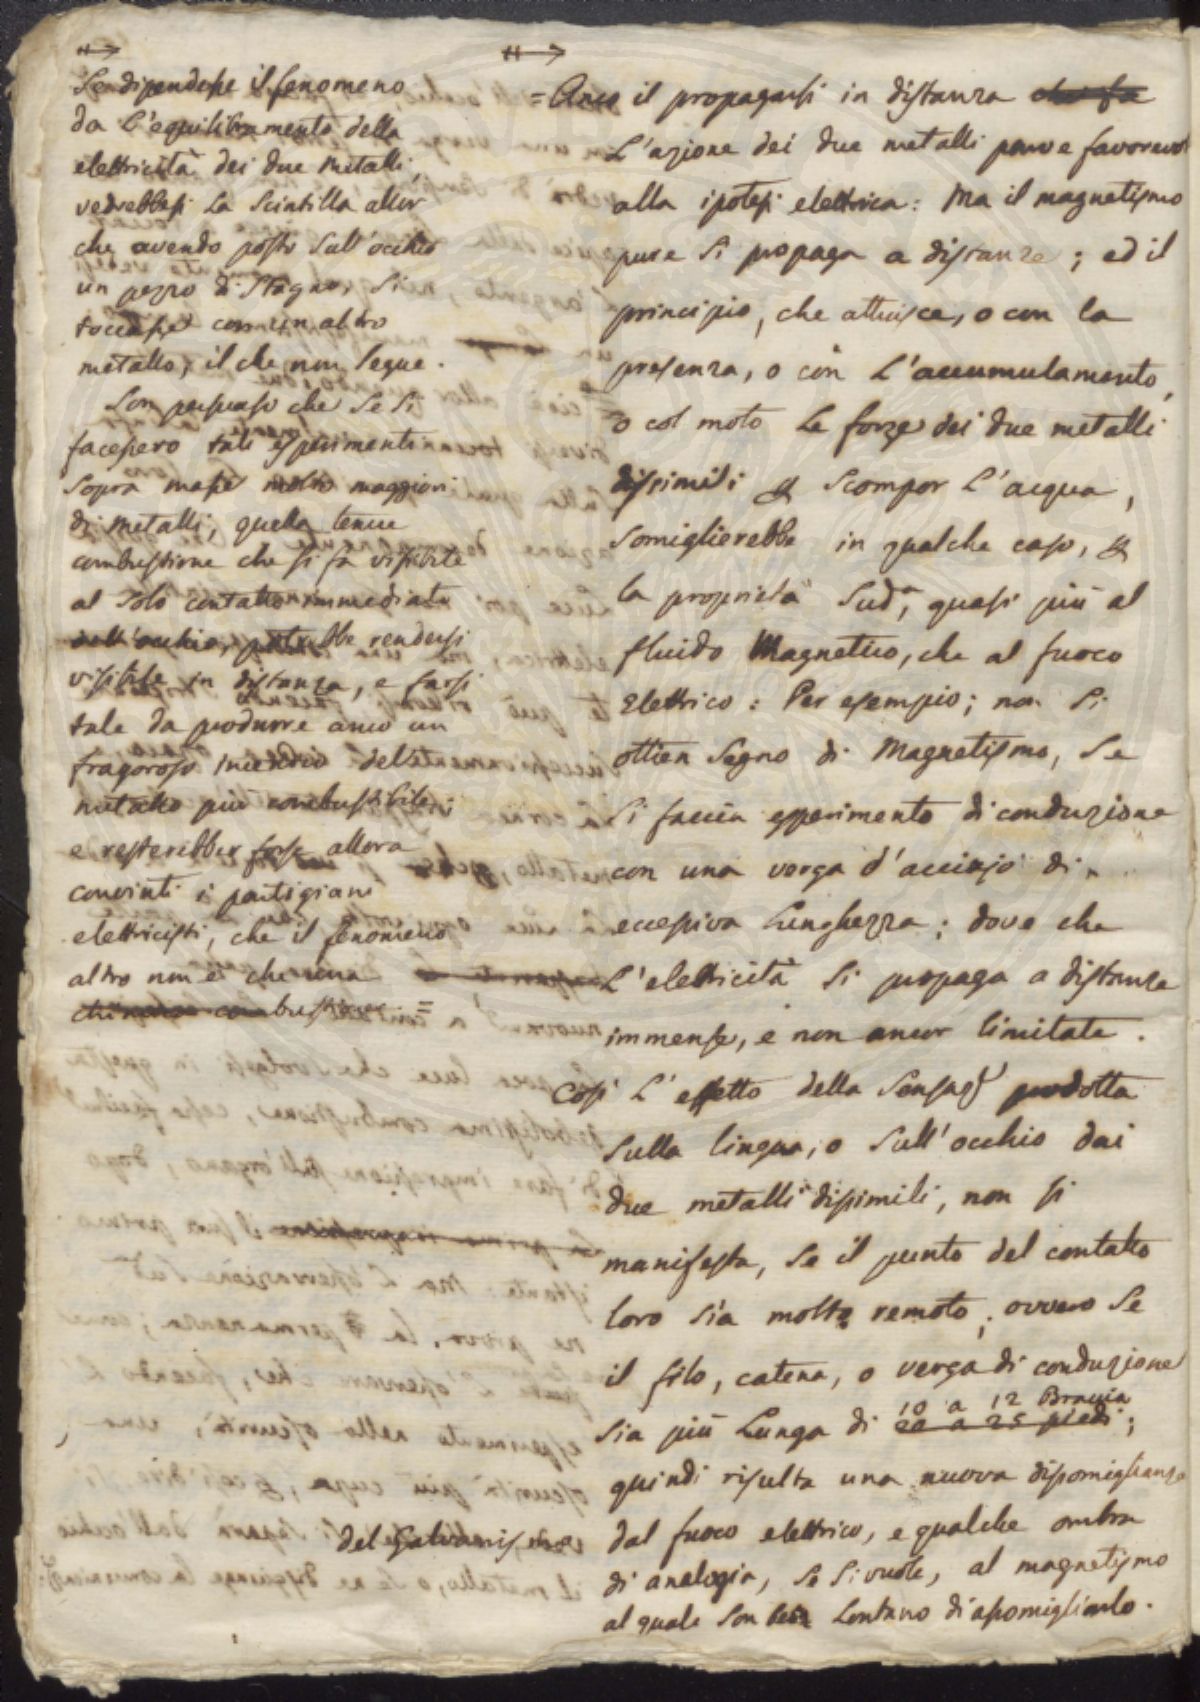 Se dipendesse il fenomeno
da l'equilibramento della
elettricità dei due metalli,
vedrebbesi la Scintilla allor
che avendo posto sull'occhio
un pezzo di Stagno, si
toccasse con un altro
metallo; il che non segue.
Son persuaso che se si
facessero tali esperimenti
sopra masse molto maggiori
di metalli, quella tenue
combustione che si fa visibile
al solo contatto immediato
dell'occhio, potrebbe rendersi
visibile in distanza, e farsi
tale da produrre anco un
fragoroso incendio del
metallo più combustibile;
e resterebber forse allora
convinti i partigiani
elettricisti, che il fenomeno
altro non è che una
combustione =
= Anco il propagarsi in distanza che fa
L'azione dei due metalli pare favorevol
alla ipotesi elettrica: Ma il magnetismo
pure si propaga a distanza; ed il
principio, che attuisce, o con la
presenza, o con L'accumulamento,
o col moto Le forze dei due metalli
dissimili & Scompor L'acqua,
Somiglierebbe in qualche caso, &
la proprietà Sudᵃ, quasi più al
fluido Magnetico, che al fuoco
Elettrico: Per esempio; non Si
ottien Segno di Magnetismo, Se
Si faccia esperimento di conduzione
con una verga d'acciajo di
eccessiva Lunghezza; dove che
L'elettricità Si propaga a distanze
immense, e non ancor limitate.
Così L'effetto della Sensaz.ᵉ prodotta
Sulla lingua, o Sull'occhio dai
due metalli dissimili, non si
manifesta, Se il punto del contatto
loro sia molto remoto; ovvero Se
il filo, catena, o verga di conduzione
10 a 12 Braccia
Sia più Lunga di 20 a 25 piedi;
quindi risulta una nuova dissomiglianza
dal fuoco elettrico, e qualche ombra
di analogia, Se Si vuole, al magnetismo
del Galvanismo
al quale Son ben Lontano di assomigliarlo.